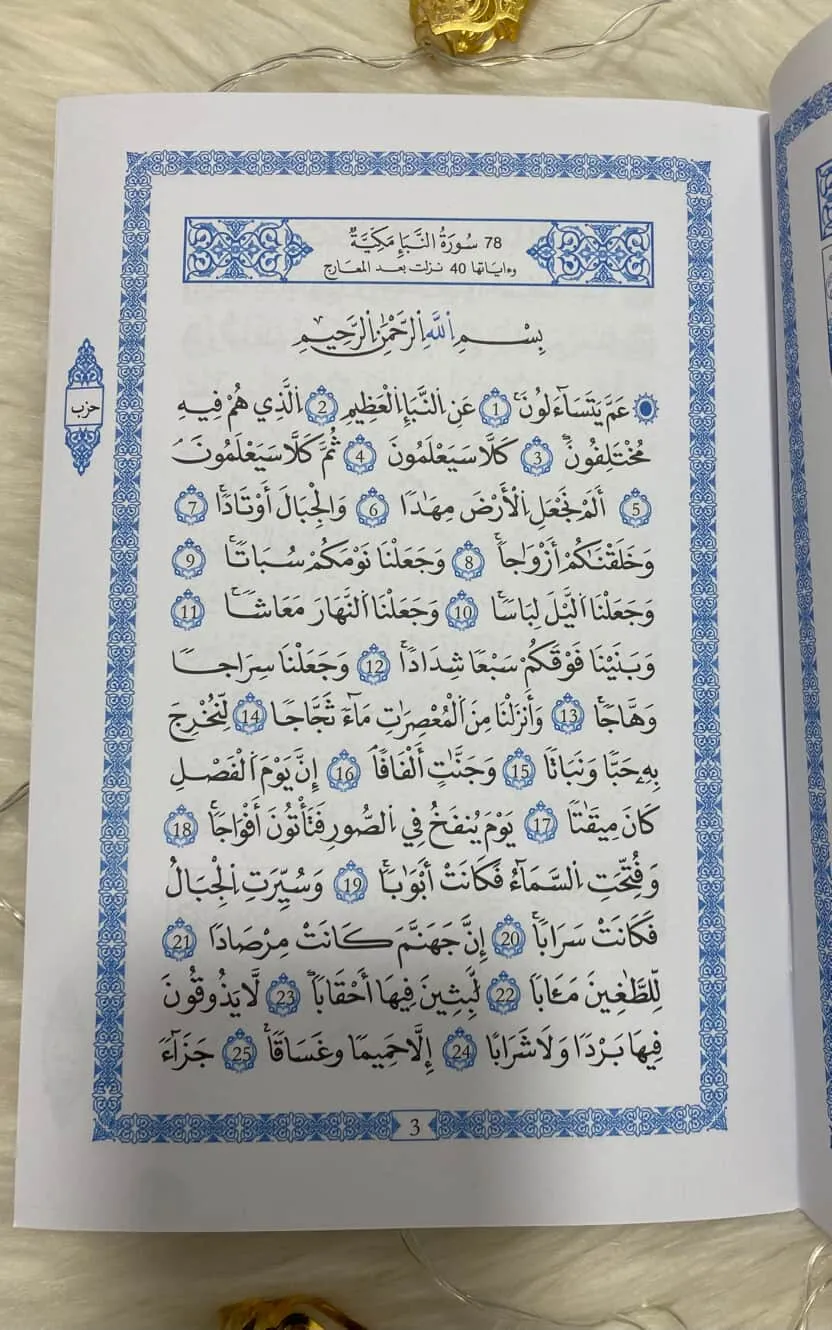 78 سُورَةُ النَّبَإِ مَكِّيَّةٌ
وءاياتها 40 نزلت بعد المعارج
بِسْمِ اِ۬للَّهِ اِ۬لرَّحْمَٰنِ اِ۬لرَّحِيمِ
حزب
عَمَّ يَتَسَآءَلُونَ 1 عَنِ اِ۬لنَّبَإِ اِ۬لْعَظِيمِ 2 اِ۬لَّذِي هُمْ فِيهِ
مُخْتَلِفُونَ 3 كَلَّا سَيَعْلَمُونَ 4 ثُمَّ كَلَّا سَيَعْلَمُونَ
5 أَلَمْ نَجْعَلِ اِ۬لْأَرْضَ مِهَٰدًا 6 وَالْجِبَالَ أَوْتَادًا 7
وَخَلَقْنَٰكُمْ أَزْوَٰجًا 8 وَجَعَلْنَا نَوْمَكُمْ سُبَاتًا 9
وَجَعَلْنَا اَ۬ليْلَ لِبَاسًا 10 وَجَعَلْنَا اَ۬لنَّهَارَ مَعَاشًا 11
وَبَنَيْنَا فَوْقَكُمْ سَبْعًا شِدَادًا 12 وَجَعَلْنَا سِرَاجًا
وَهَّاجًا 13 وَأَنزَلْنَا مِنَ اَ۬لْمُعْصِرَٰتِ مَآءً ثَجَّاجًا 14 لِّنُخْرِجَ
بِهِۦ حَبًّا وَنَبَاتًا 15 وَجَنَّٰتٍ أَلْفَافًا 16 إِنَّ يَوْمَ اَ۬لْفَصْلِ
كَانَ مِيقَٰتًا 17 يَوْمَ يُنفَخُ فِي اِ۬لصُّورِ فَتَأْتُونَ أَفْوَاجًا 18
وَفُتِّحَتِ اِ۬لسَّمَآءُ فَكَانَتْ أَبْوَٰبًا 19 وَسُيِّرَتِ اِ۬لْجِبَالُ
فَكَانَتْ سَرَابًا 20 إِنَّ جَهَنَّمَ كَانَتْ مِرْصَادًا 21
لِّلطَّٰغِينَ مَـَٔابًا 22 لَّٰبِثِينَ فِيهَا أَحْقَابًا 23 لَّا يَذُوقُونَ
فِيهَا بَرْدًا وَلَا شَرَابًا 24 إِلَّا حَمِيمًا وَغَسَاقًا 25 جَزَآءً
3